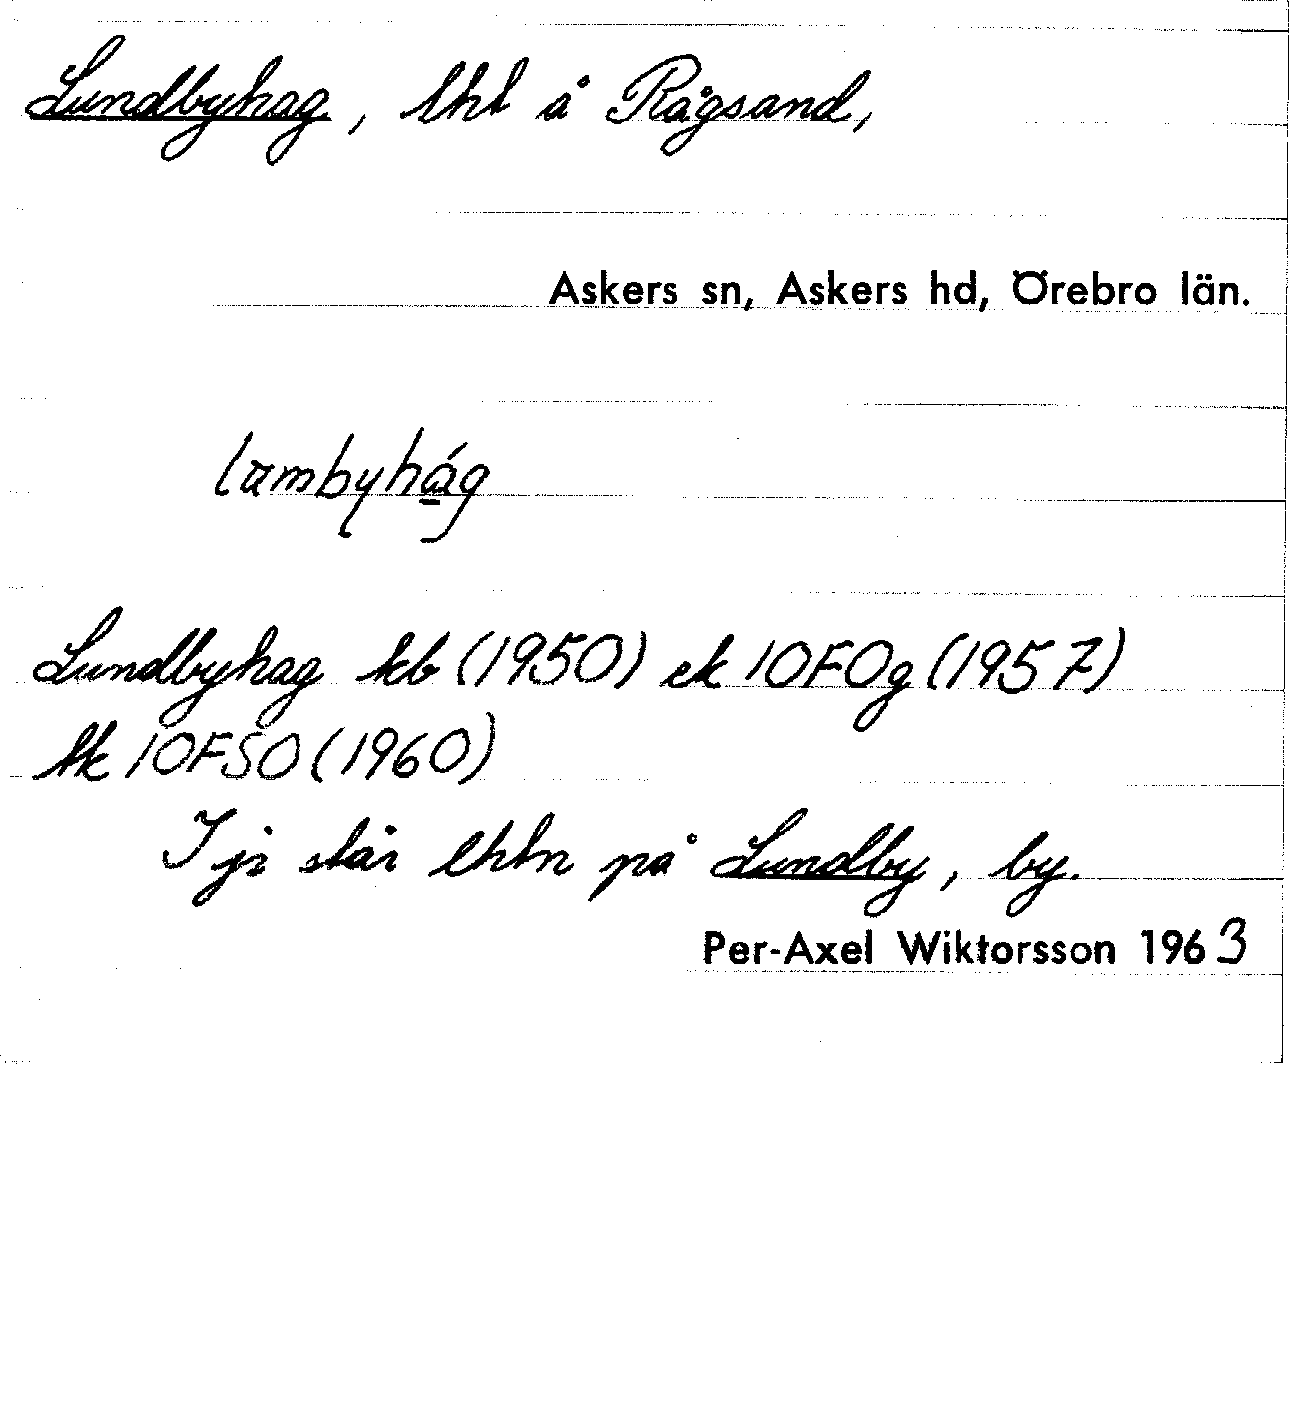 Lundbyhag, lht å Rågsand,
Askers sn, Askers hd, Örebro län.
Lundbyhag kb (1950) ek 10F0g (1957)
tk 10FSO (1960)
I jr står lhtn på Lundby, by.
Per-Axel Wiktorsson 1963